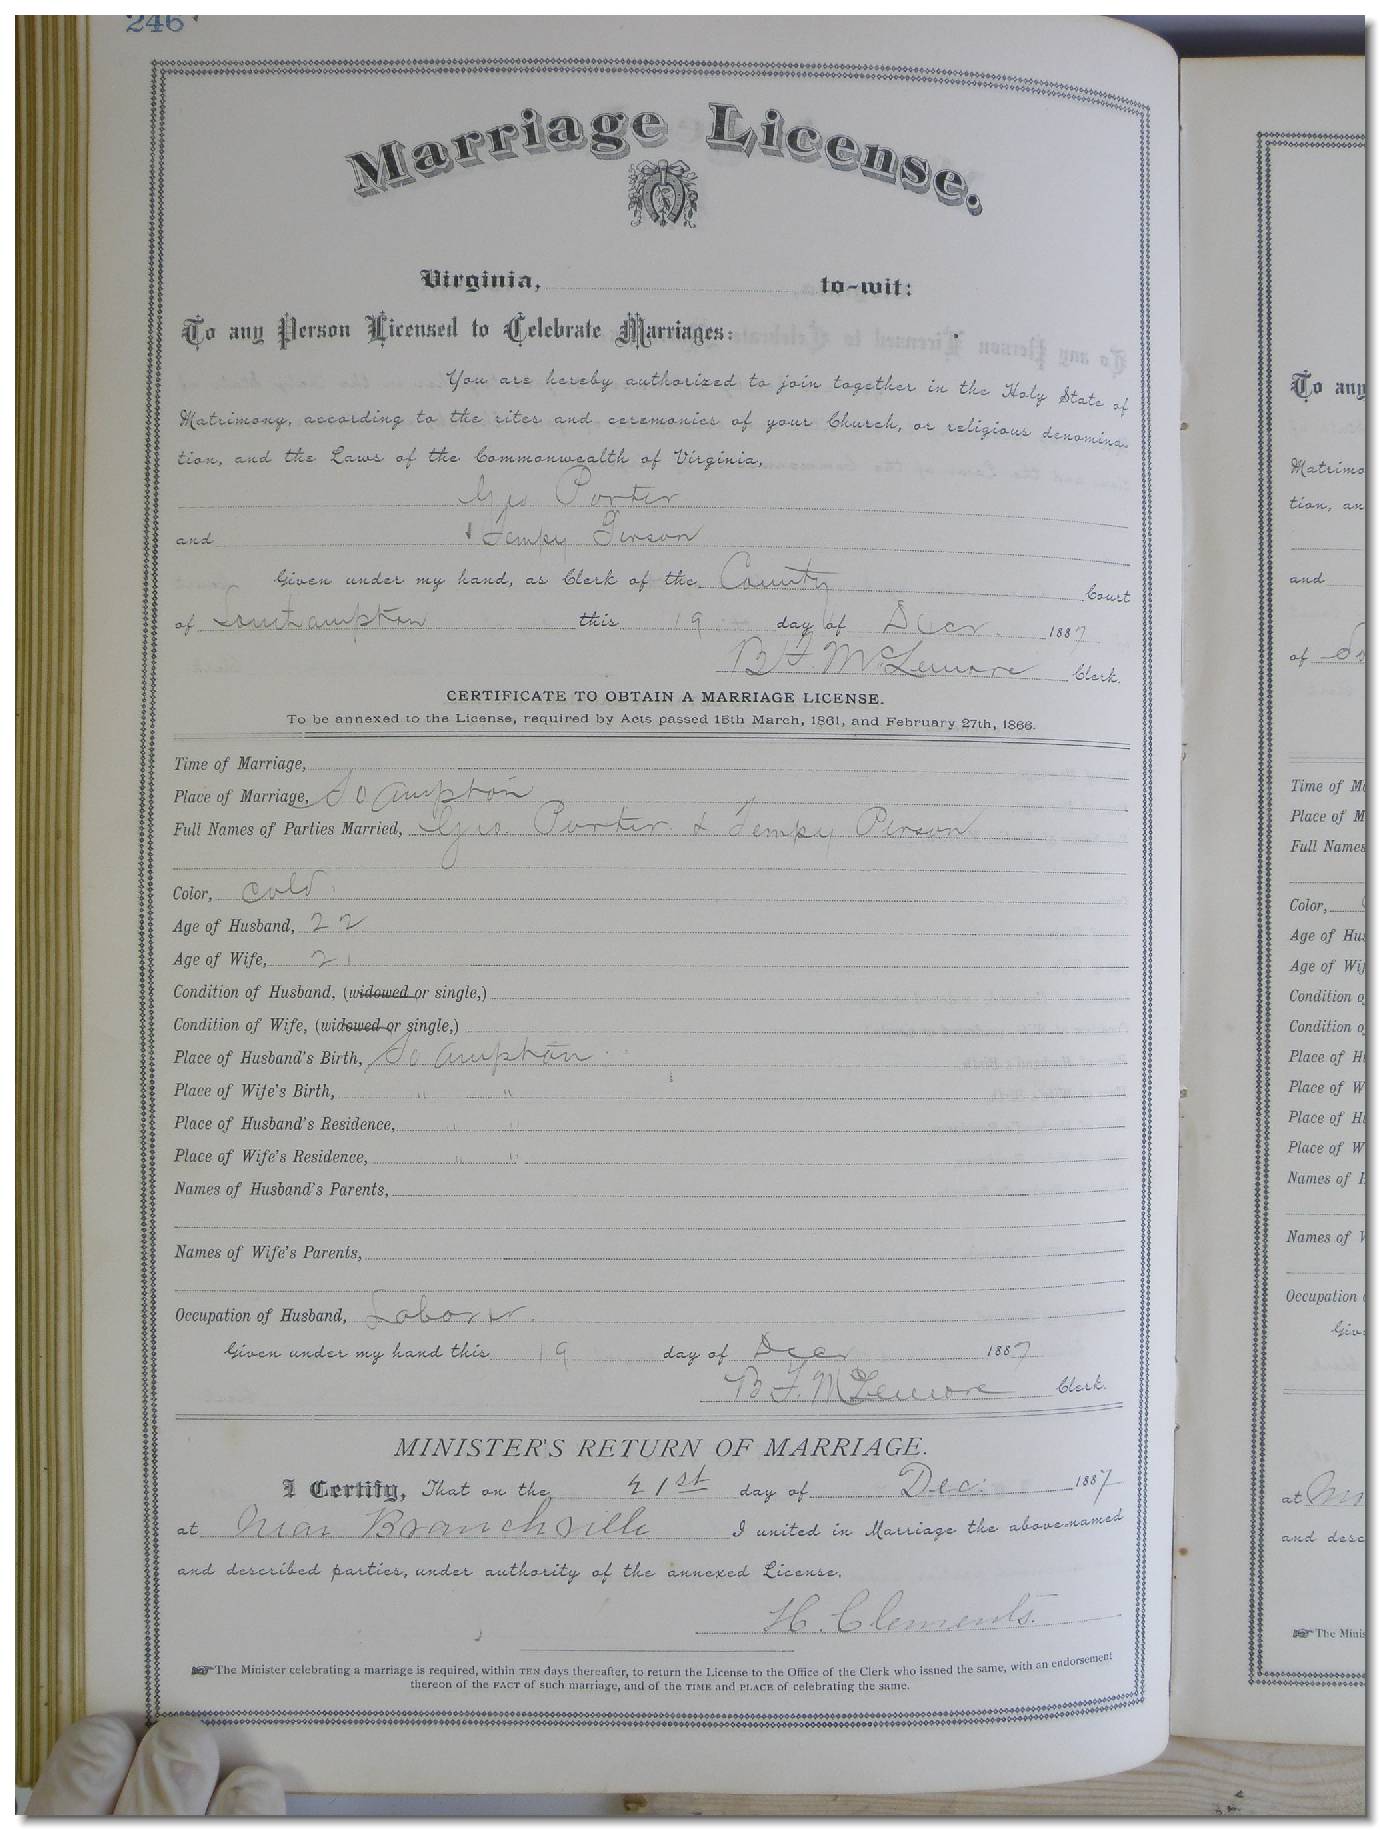 246
Marriage License.
Virginia, to-wit:
To any Person Licensed to Celebrate Marriages:
You are hereby authorized to join together in the Holy State of
Matrimony, according to the rites and ceremonies of your Church, or religious denomina-
tion, and the Laws of the Commonwealth of Virginia,
Geo Porter
and & Tempy Person
Given under my hand, as Clerk of the County Court
of Southampton this 19 day of Decr 1887
B F. McLemore Clerk.
CERTIFICATE TO OBTAIN A MARRIAGE LICENSE.
To be annexed to the License, required by Acts passed 15th March, 1861, and February 27th, 1866.
Time of Marriage,
Place of Marriage, So ampton
Full Names of Parties Married, Geo. Porter & Tempy Person
Color, cold
Age of Husband, 22
Age of Wife, 21
Condition of Husband, (widowed or single,)
Condition of Wife, (widowed or single,)
Place of Husband's Birth, So ampton
Place of Wife's Birth, " "
Place of Husband's Residence, " "
Place of Wife's Residence, " "
Names of Husband's Parents,
Names of Wife's Parents,
Occupation of Husband, Laborer.
Given under my hand this 19 day of Decr 1887
B F. McLemore Clerk.
MINISTER'S RETURN OF MARRIAGE.
I Certify, That on the 21st day of Dec. 1887
at Near Branchville I united in Marriage the above-named
and described parties, under authority of the annexed License.
H. Clements.
The Minister celebrating a marriage is required, within TEN days thereafter, to return the License to the Office of the Clerk who issued the same, with an endorsement
thereon of the FACT of such marriage, and of the TIME and PLACE of celebrating the same.
To any
Matrimo
tion, an
and
of So
Time of Ma
Place of M
Full Names
Color,
Age of Hus
Age of Wif
Condition o
Condition o
Place of H
Place of W
Place of H
Place of W
Names of H
Names of W
Occupation
Giv
at
and desc
The Minis